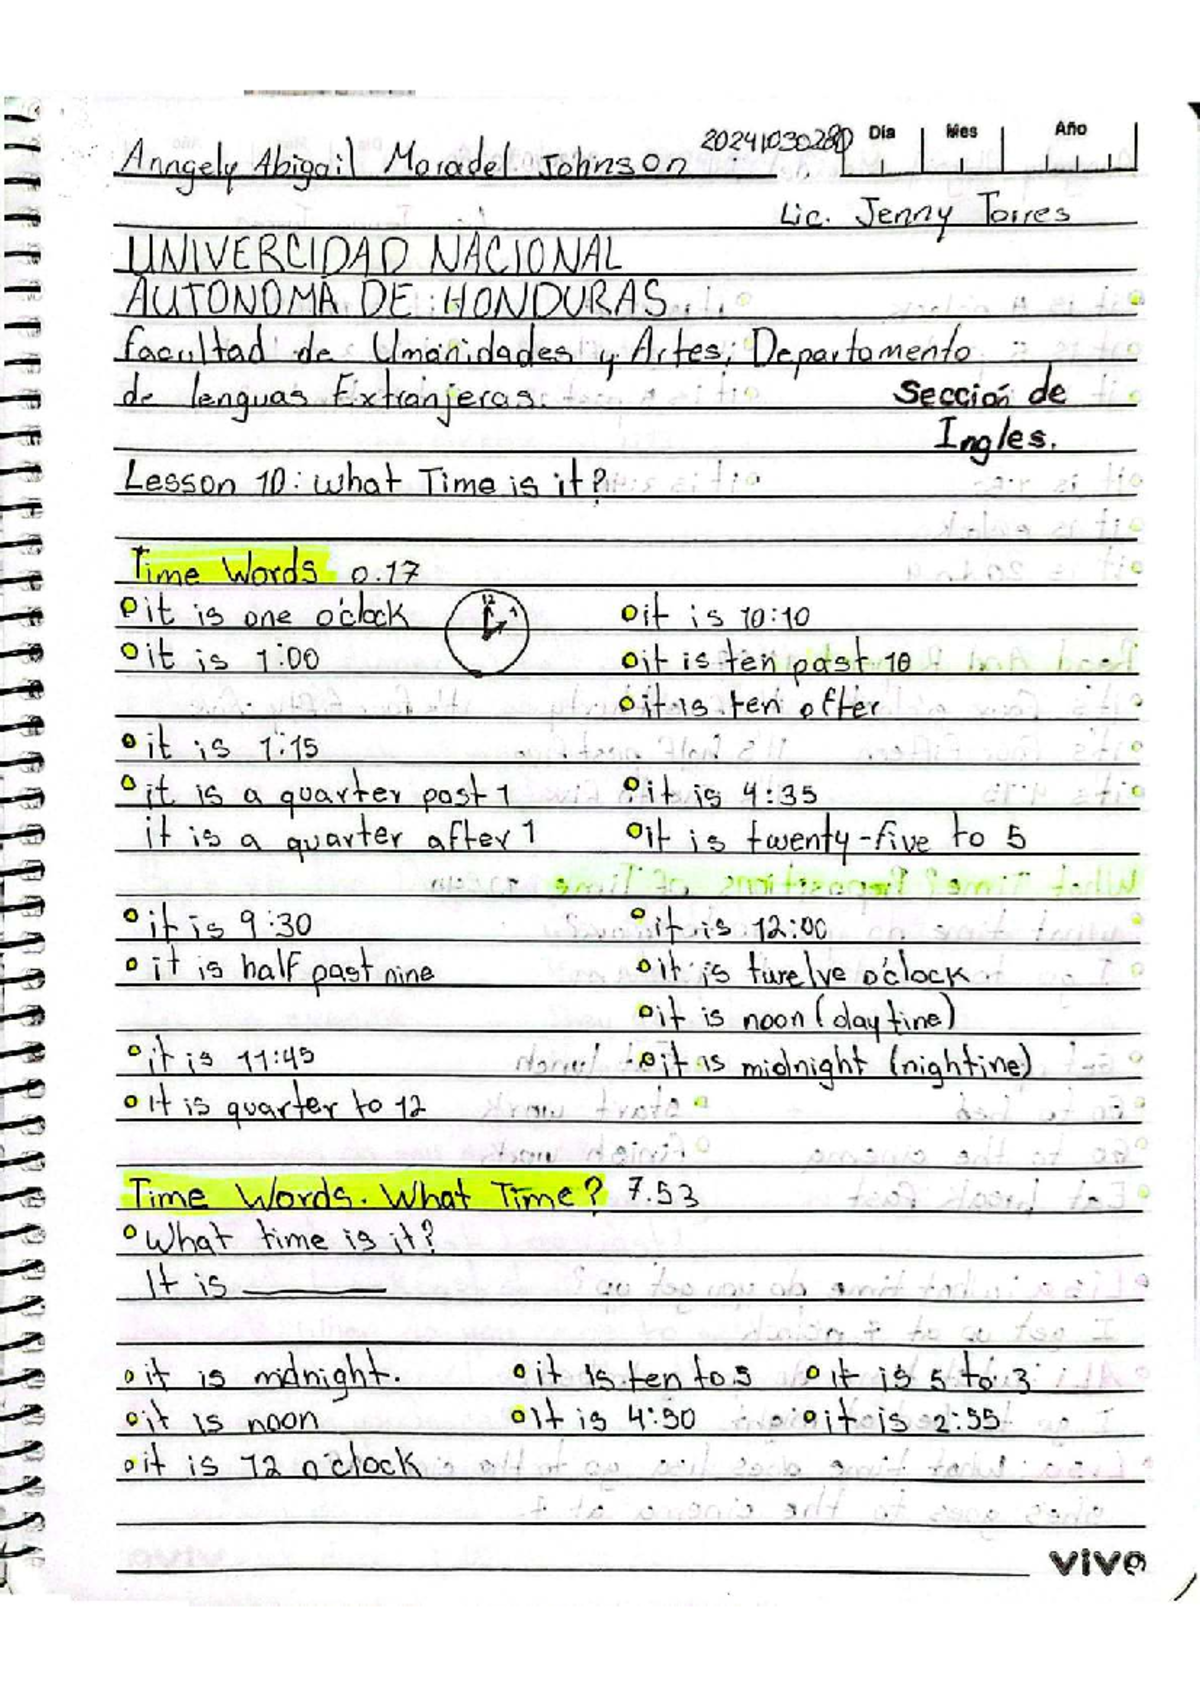 20241030280 Día Mes Año
Anngely Abigail Maradel Johnson
Lic. Jenny Torres
UNIVERCIDAD NACIONAL
AUTONOMA DE HONDURAS
facultad de Umanidades y Artes, Departamento
de lenguas Extranjeras. Sección de
Ingles.
Lesson 10: What Time is it?
Time Words 0.17
it is one o'clock 12 1 it is 10:10
it is 1:00 it is ten past 10
it is ten after
it is 1:15
it is a quarter past 1 it is 4:35
it is a quarter after 1 it is twenty-five to 5
it is 9:30 it is 12:00
it is half past nine it is twelve o'clock
it is noon (daytine)
it is 11:45 it is midnight (nightine)
It is quarter to 12
Time Words. What Time? 7.53
What time is it?
It is ______
it is midnight. it is ten to 5 it is 5 to 3
it is noon It is 4:50 it is 2:55
it is 12 o'clock
vive